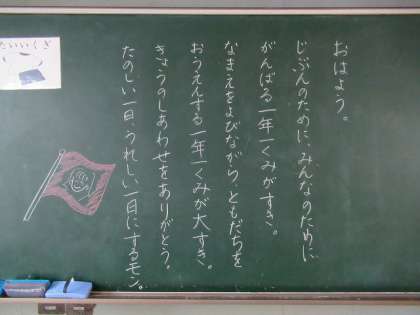 おはよう。
じぶんのために、みんなのために
がんばる一年一くみがすき。
なまえをよびながら、ともだちを
おうえんする一年一くみが大すき。
きょうのしあわせをありがとう。
たのしい一日、うれしい一日にするモン。
たいいくぎ